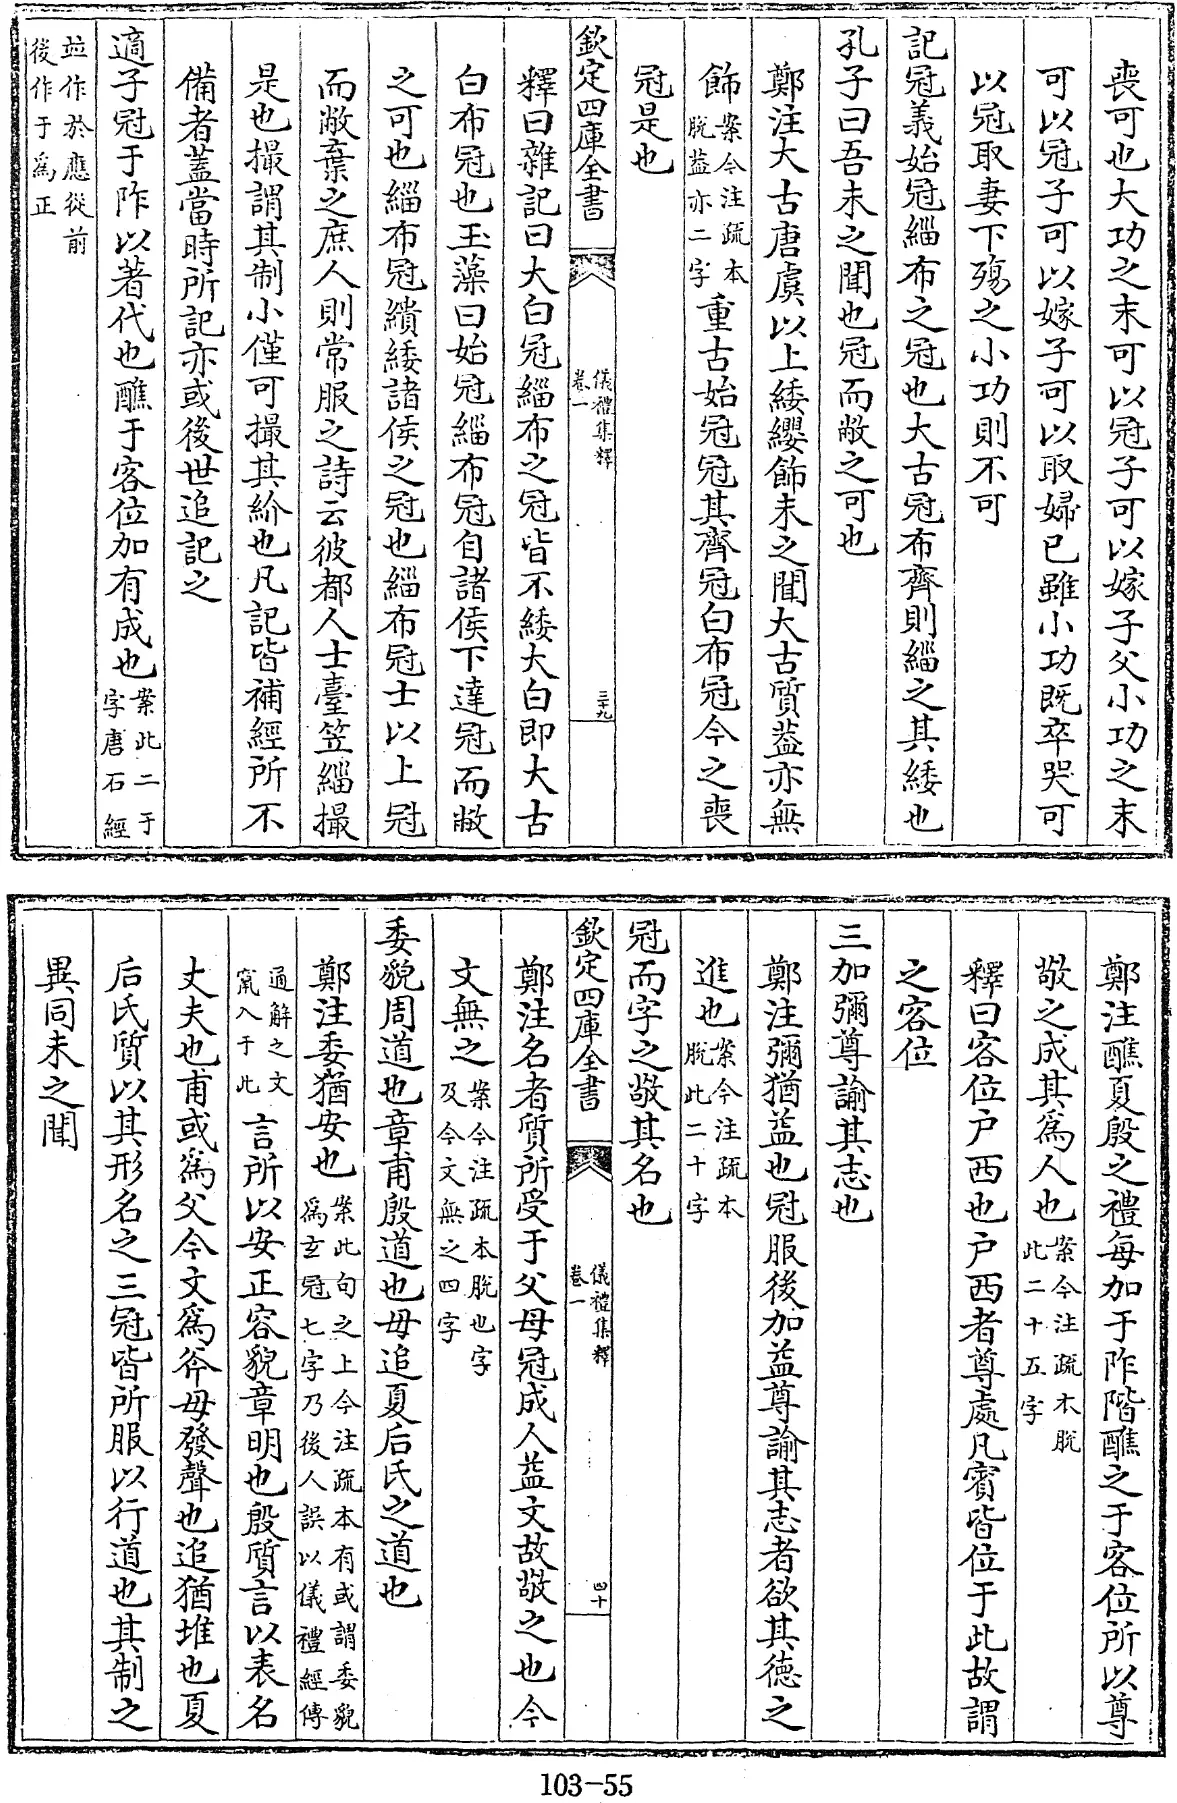 喪可也大功之末可以冠子可以嫁子父小功之末
可以冠子可以嫁子可以取婦已雖小功既卒哭可
以冠取妻下殤之小功則不可
記冠義始冠緇布之冠也大古冠布齊則緇之其緌也
孔子曰吾未之聞也冠而敝之可也
鄭注大古唐虞以上緌纓飾未之聞大古質葢亦無
飾案今注疏本脫葢亦二字重古始冠冠其齊冠白布冠今之喪
冠是也
欽定四庫全書
儀禮集釋
卷一
三十九
釋曰雜記曰大白冠緇布之冠皆不緌大白即大古
白布冠也玉藻曰始冠緇布冠自諸侯下達冠而敝
之可也緇布冠繢緌諸侯之冠也緇布冠士以上冠
而敝棄之庶人則常服之詩云彼都人士臺笠緇撮
是也撮謂其制小僅可撮其紒也凡記皆補經所不
備者蓋當時所記亦或後世追記之
適子冠于阼以著代也醮于客位加有成也案此二于字唐石經
並作於應從前後作于為正
鄭注醮夏殷之禮每加于阼階醮之于客位所以尊
敬之成其為人也案今注疏本脫此二十五字
釋曰客位户西也户西者尊處凡賓皆位于此故謂
之客位
三加彌尊諭其志也
鄭注彌猶益也冠服後加益尊諭其志者欲其德之
進也案今注疏本脫此二十字
冠而字之敬其名也
欽定四庫全書
儀禮集釋
卷一
四十
鄭注名者質所受于父母冠成人益文故敬之也今
文無之案今注疏本脫也字及今文無之四字
委貌周道也章甫殷道也毋追夏后氏之道也
鄭注委猶安也案此句之上今注疏本有或謂委貌為玄冠七字乃後人誤以儀禮經傳
通解之文竄入于此言所以安正容貌章明也殷質言以表名
丈夫也甫或為父今文為斧毋發聲也追猶堆也夏
后氏質以其形名之三冠皆所服以行道也其制之
異同未之聞
103-55